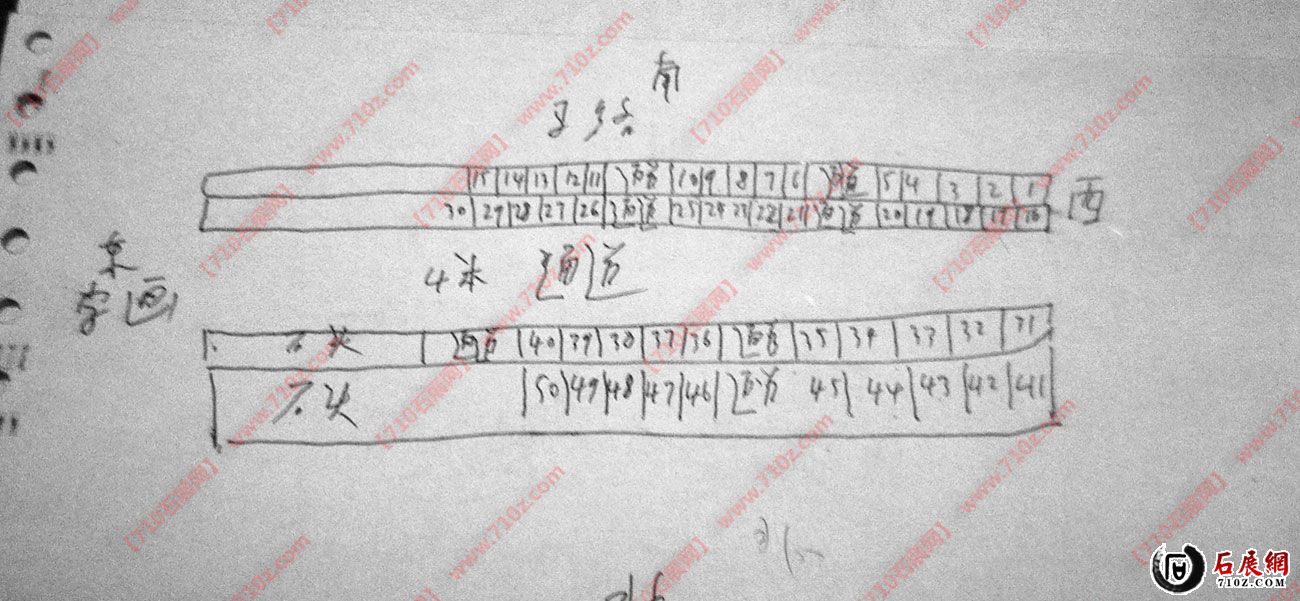 南
15 14 13 12 11 通道 10 9 8 7 6 通道 5 4 3 2 1
西
30 29 28 27 26 通道 25 24 23 22 21 通道 20 19 18 17 16
东
字画
4米 通道
石头 通道 40 39 38 37 36 通道 35 34 33 32 31
石头 50 49 48 47 46 通道 45 44 43 42 41
北
【710石展网】www.710z.com
石展網
710Z.COM